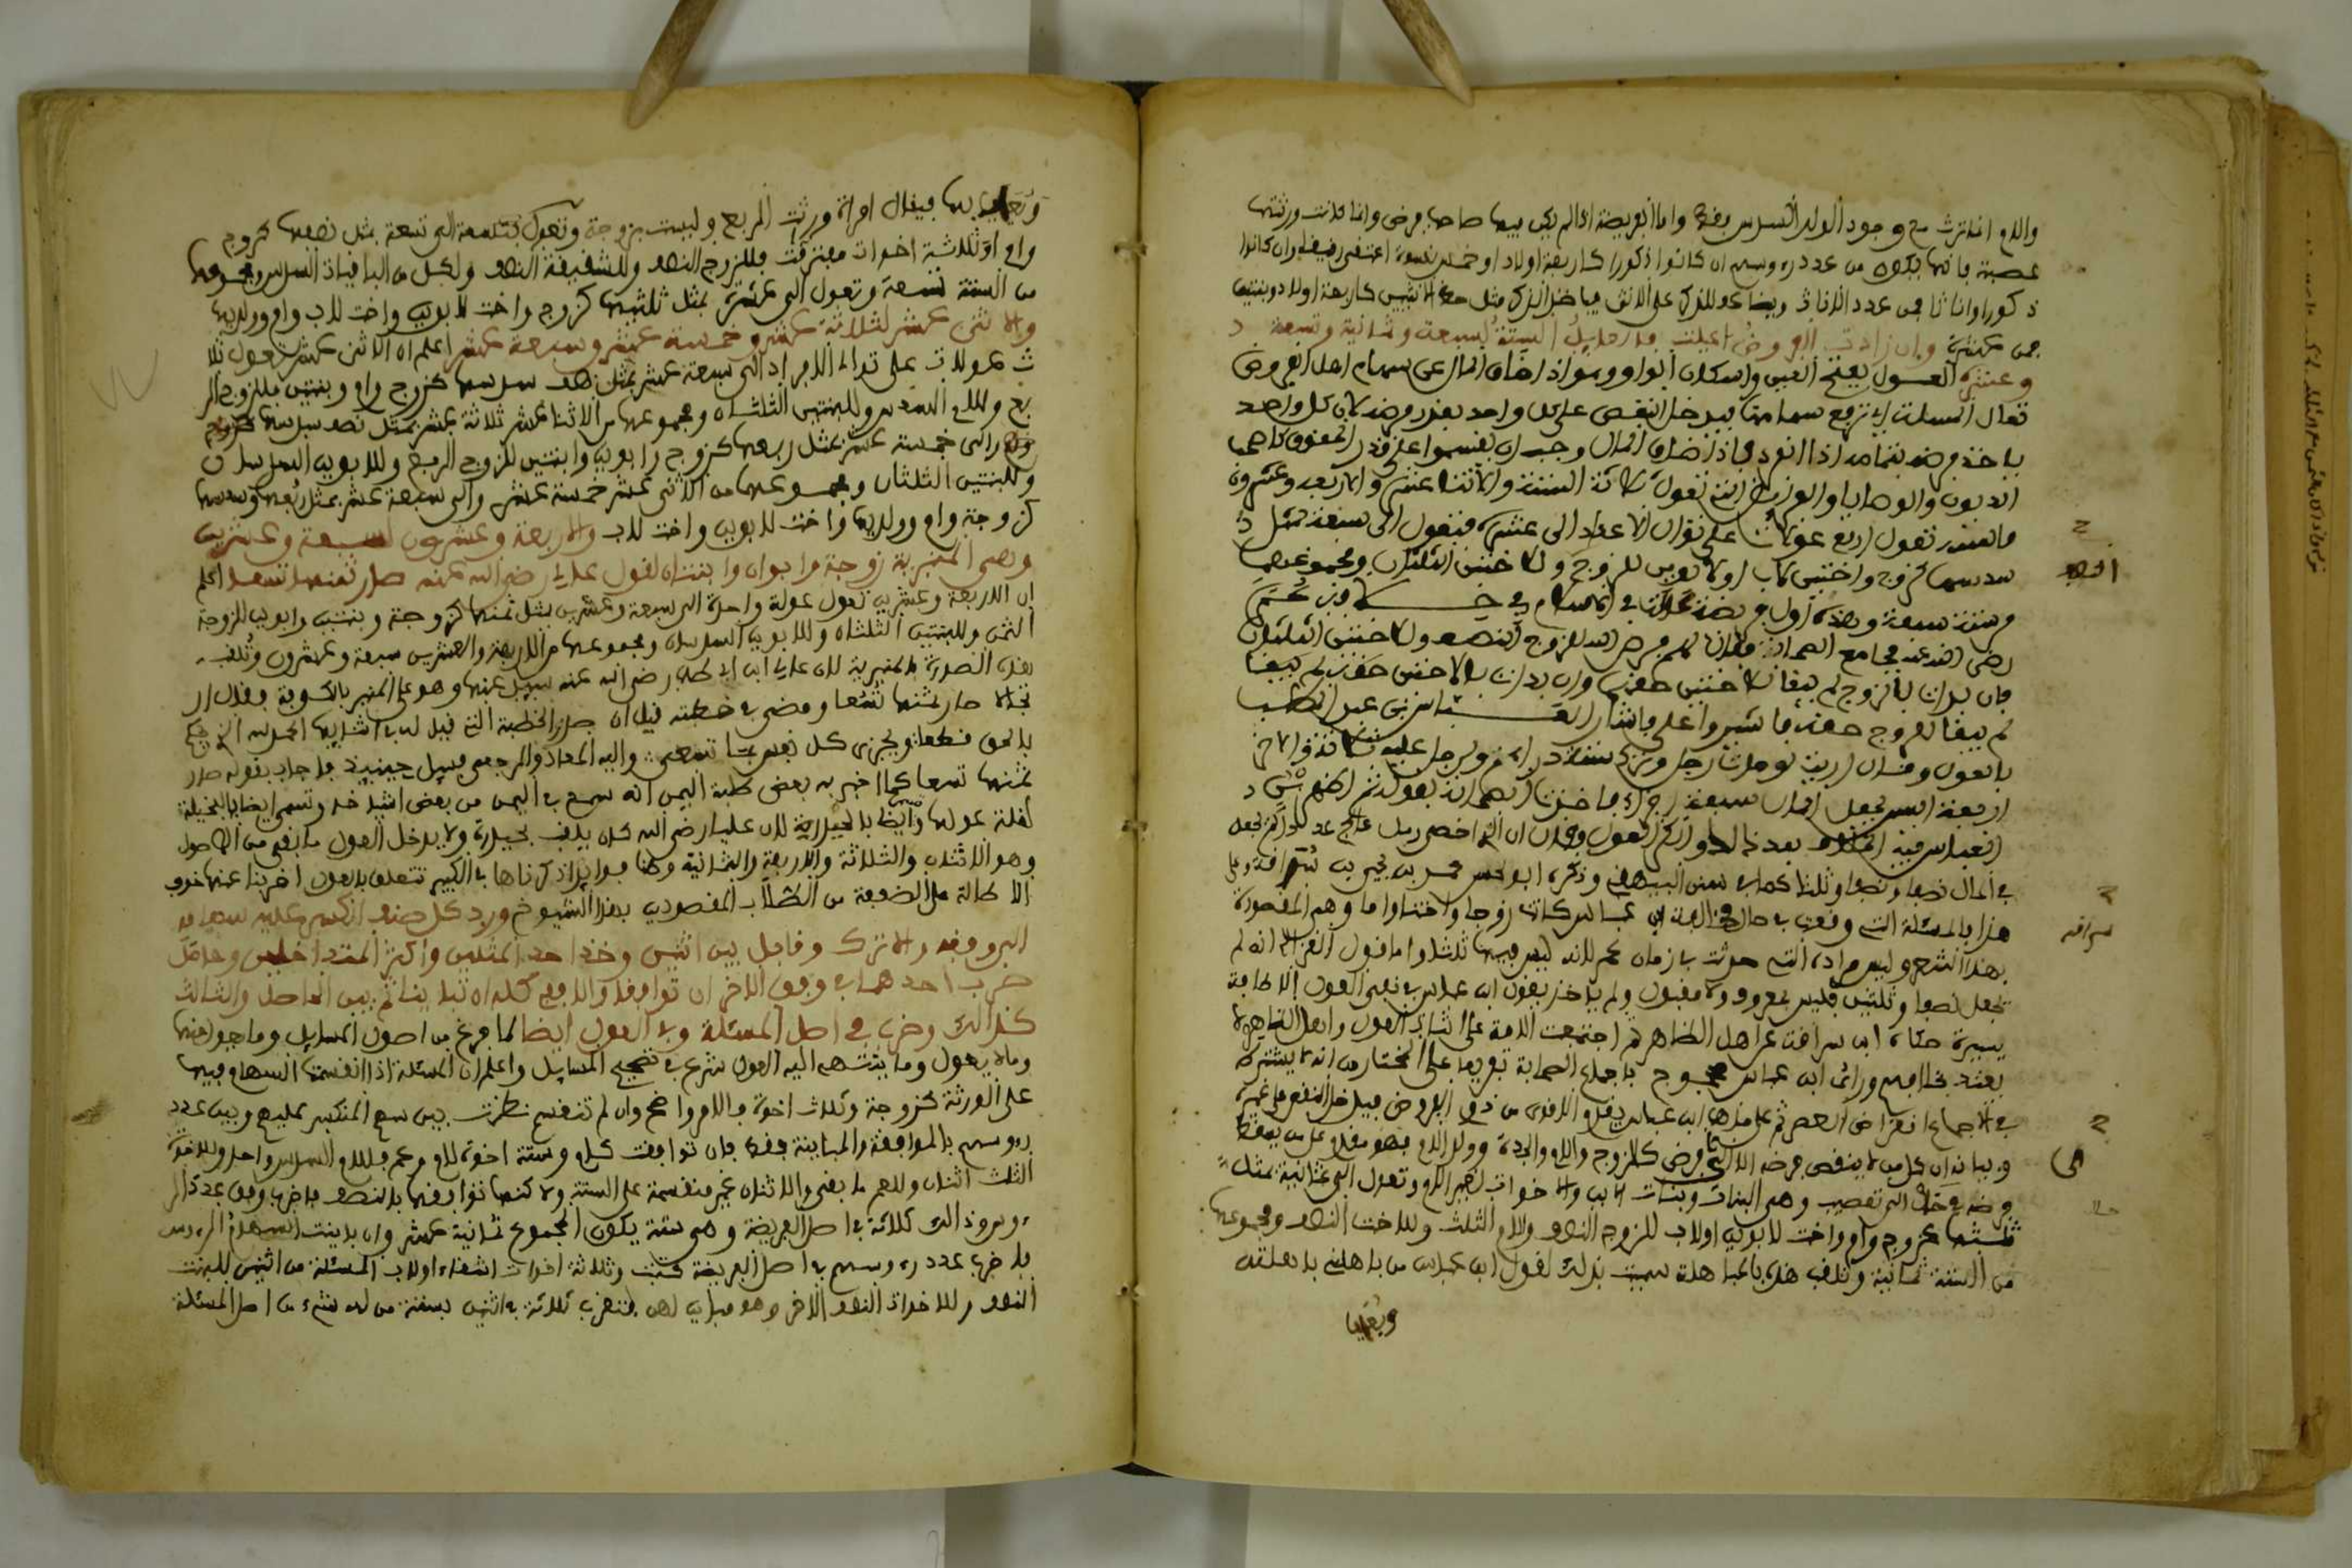 والام انما ترث مع وجود الولد السدس بفرض واما الفريضة اذا لم يكن فيها صاحب فرض وانما كانت ورثتها
عصبة فانها تكون من عدد رءوسهم ان كانوا ذكورا كاربعة اولاد او خمس نسوة اعتقن رقيقا وان كانوا
ذكورا واناثا فمن عدد الاناث ويضاعف للذكر على الانثى فياخذ الذكر مثل حظ الانثيين كاربعة اولاد وبنتين
فمن عشرة وان زادت الفروض اعيلت الستة لسبعة وثمانية وتسعة
وعشرة العول بفتح العين واسكان الواو وهو اذا ضاق المال عن سهام اهل الفروض
تعال المسئلة اي ترفع سهامها فيدخل النقص على كل واحد بقدر فرضه لان كل واحد
ياخذ فرضه بتمامه اذا انفرد فاذا ضاق المال وجب ان يقتسموا على قدر الحقوق كاصحاب
الديون والوصايا والفرائض التي تعول ثلاثة الستة والاثنا عشر والاربعة وعشرون
فالستة تعول اربع عولات على توالي الاعداد الى عشرة فتعول الى سبعة بمثل
سدسها كزوج واختين لاب او لابوين للزوج وللاختين الثلثان ومجموعهما
من ستة سبعة وهذه اول فريضة عالت في الاسلام في خلافة عمر
رضي الله عنه فجمع الصحابة فقال لهم فرض الله للزوج النصف وللاختين الثلثان
فان بدات بالزوج لم يبقا للاختين حقهن وان بدات بالاختين حقهن لم يبقا
لم يبقا للزوج حقه فاشيروا علي فاشار العباس بن عبد المطلب
بالعول وقال ارايت لو مات رجل وترك ستة دراهم ولرجل عليه ثلاثة ولاخر
اربعة اليس يجعل المال سبعة اجزاء فاخذت الصحابة بقوله ثم اظهر
ابن عباس فيه الخلاف بعد ذلك وانكر العول وقال ان الذي احصى رمل عالج عددا لم يجعل
في المال نصفا ونصفا وثلثا كما في سنن البيهقي وذكره ابو الحسن محمد بن يحيى بن سراقة وعلى
هذا بالمسئلة التي وقعت في حال مخالفة ابن عباس كانت زوجا واختا واما وهم المقصودة
بهذا الشعر وليس مراده التي حدثت في زمان عمر لانه ليس فيها ثلث واما قول الغزالي انه لم
يجعل نصفا وثلثين فليس بمعروف ولا مقبول ولم ياخذ بقول ابن عباس في نفي العول الا طائفة
يسيرة حكاه ابن سراقة عن اهل الظاهر ثم اجتمعت الامة على اثبات العول واهل الظاهر لا
يعتد بخلافهم وراى ابن عباس محجوج باجماع الصحابة تفريعا على المختار من انه لا يشترط
في الاجماع انقراض العصر ثم على مذهب ابن عباس يقدم الاقوى من ذوي الفروض فيدخل النقص على غيره
وبيانه ان كل من لا ينقص فرضه الا الى فرض كالزوج والام والجدة وولد الام فهو مقدم على من يسقط
فرضه في حال الى تعصيب وهم البنات وبنات الابن والاخوات لغير الام وتعول الى ثمانية بمثل
ثلثها كزوج وام واخت لابوين او لاب للزوج النصف وللام الثلث وللاخت النصف ومجموعها
من الستة ثمانية وتلقب هذه بالمباهلة سميت بذلك لقول ابن عباس من باهلني باهلته
وبقيا
الخطا
سراقه
الى
فيقال امراة ورثت الربع وليست بزوجة وتعول الى تسعة بمثل نصفها كزوج
وام وثلاثة اخوات مفترقت فللزوج النصف وللشقيقة النصف ولكل من الباقيات السدس ومجموعها
من الستة تسعة وتعول الى عشرة بمثل ثلثيها كزوج واخت لابوين واخت لاب وام وولديها
والاثني عشر لثلاثة عشر وخمسة عشر وسبعة عشر اعلم ان الاثنى عشر تعول ثلا
ث عولات على توالي الافراد الى سبعة عشر بمثل نصف سدسها كزوج وام وبنتين فللزوج الر
بع وللام السدس وللبنتين الثلثان ومجموعها من الاثنا عشر ثلاثة عشر بمثل نصف سدسها
والى خمسة عشر بمثل ربعها كزوج وابوين وابنتين للزوج الربع وللابوين السدسان
وللبنتين الثلثان ومجموعها من الاثنى عشر خمسة عشر والى سبعة عشر بمثل ربعها وسدسها
كزوجة وام وولديها واخت لابوين واخت لاب والاربعة وعشرون لسبعة وعشرين
وهي المنبرية زوجة وابوان وابنتان لقول علي رضي الله عنه صار ثمنها تسعا اعلم
ان الاربعة وعشرين تعول عولة واحدة الى سبعة وعشرين بمثل ثمنها كزوجة وبنتين وابوين للزوجة
الثمن وللبنتين الثلثان وللابوين السدسان ومجموعها من الاربعة والعشرين سبعة وعشرون وتلقب
هذه الصورة بالمنبرية لان علي ابن ابي طالب رضي الله عنه سيل عنها وهو على المنبر بالكوفة فقال ار
تجالا صار ثمنها تسعا ومضى في خطبته قيل ان صدر الخطبة التي قيل له في اثنايها الحمد لله الذي يحكم
بالحق قطعا ويجزي كل نفس بما تسعى واليه المعاد والرجعى فسيل حينيذ فاجاب بقوله صار
ثمنها تسعا كما اخبر به بعض طلبة اليمن انه سمع في اليمن من بعض اشياخه وتسمى ايضا بالبخيلة
لقلة عولها وايضا بالحيدرية لان عليا رضي الله عنه كان يلقب بحيدرة ولا يدخل العول ما بقي من الاصول
وهو الاثنان والثلاثة والاربعة والثمانية وهنا فوايد ذكرناها في الكبير تتعلق بالعول اضربنا عنها خوف
الاطالة على الضعفة من الطلاب المقصودين بهذا الشيوخ ورد كل صنف انكسر عليه سهامه
الى وفقه والا ترك وقابل بين اثنين وخذ احد المثلين واكثر المتداخلين وحاصل
ضرب احدهما في وفق الاخر ان توافقا والا ففي كله ان تباينا ثم بين الحاصل والثالث
كذلك وضرب في اصل المسئلة وفي العول ايضا لما فرغ من اصول المسايل وما يعول منها
وما لا يعول وما ينتهي اليه العول شرع في تصحيح المسايل واعلم ان المسئلة اذا انقسمت السهام فيها
على الورثة كزوجة وثلاث اخوة فالامر واضح وان لم تنقسم نظرت بين سهم المنكسر عليهم وبين عدد
رءوسهم بالموافقة والمباينة فقط فان توافقت كام وستة اخوة لام وعم فللام السدس واحد وللاخوة
الثلث اثنان وللعم ما بقي والاثنان غير منقسمة على الستة ولا كنها توافقها بالنصف فاضرب وفق عدد الر
ءوس وذالك ثلاثة في اصل الفريضة وهي ستة يكون المجموع ثمانية عشر وان باينت السهام الرءوس
فاضرب عدد رءوسهم في اصل الفريضة كبنت وثلاثة اخوات اشقاء او لاب المسئلة من اثنين للبنت
النصف وللاخوات النصف الاخر وهو مباين لهن فتضرب ثلاثة في اثنين بستة من له شيء من اصل المسئلة